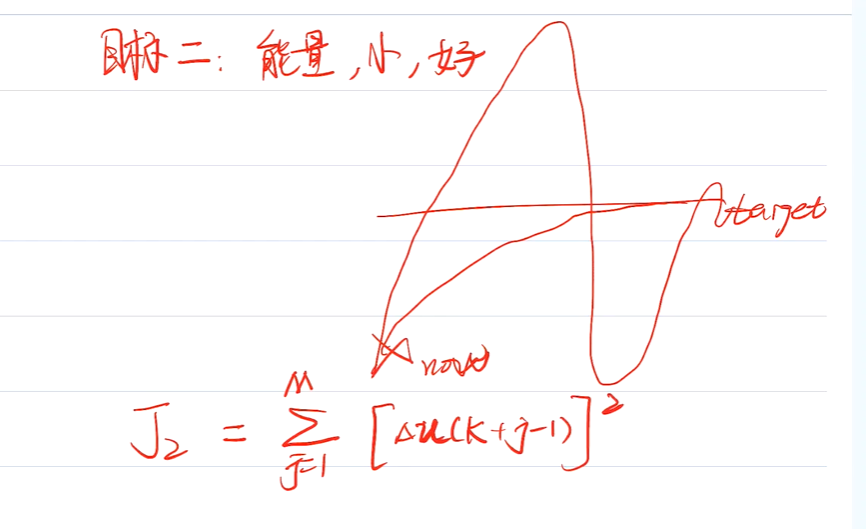 目标二：能量,小,好
target
now
J₂ = Σ_{j=1}^{M} [Δu(k+j-1)]²